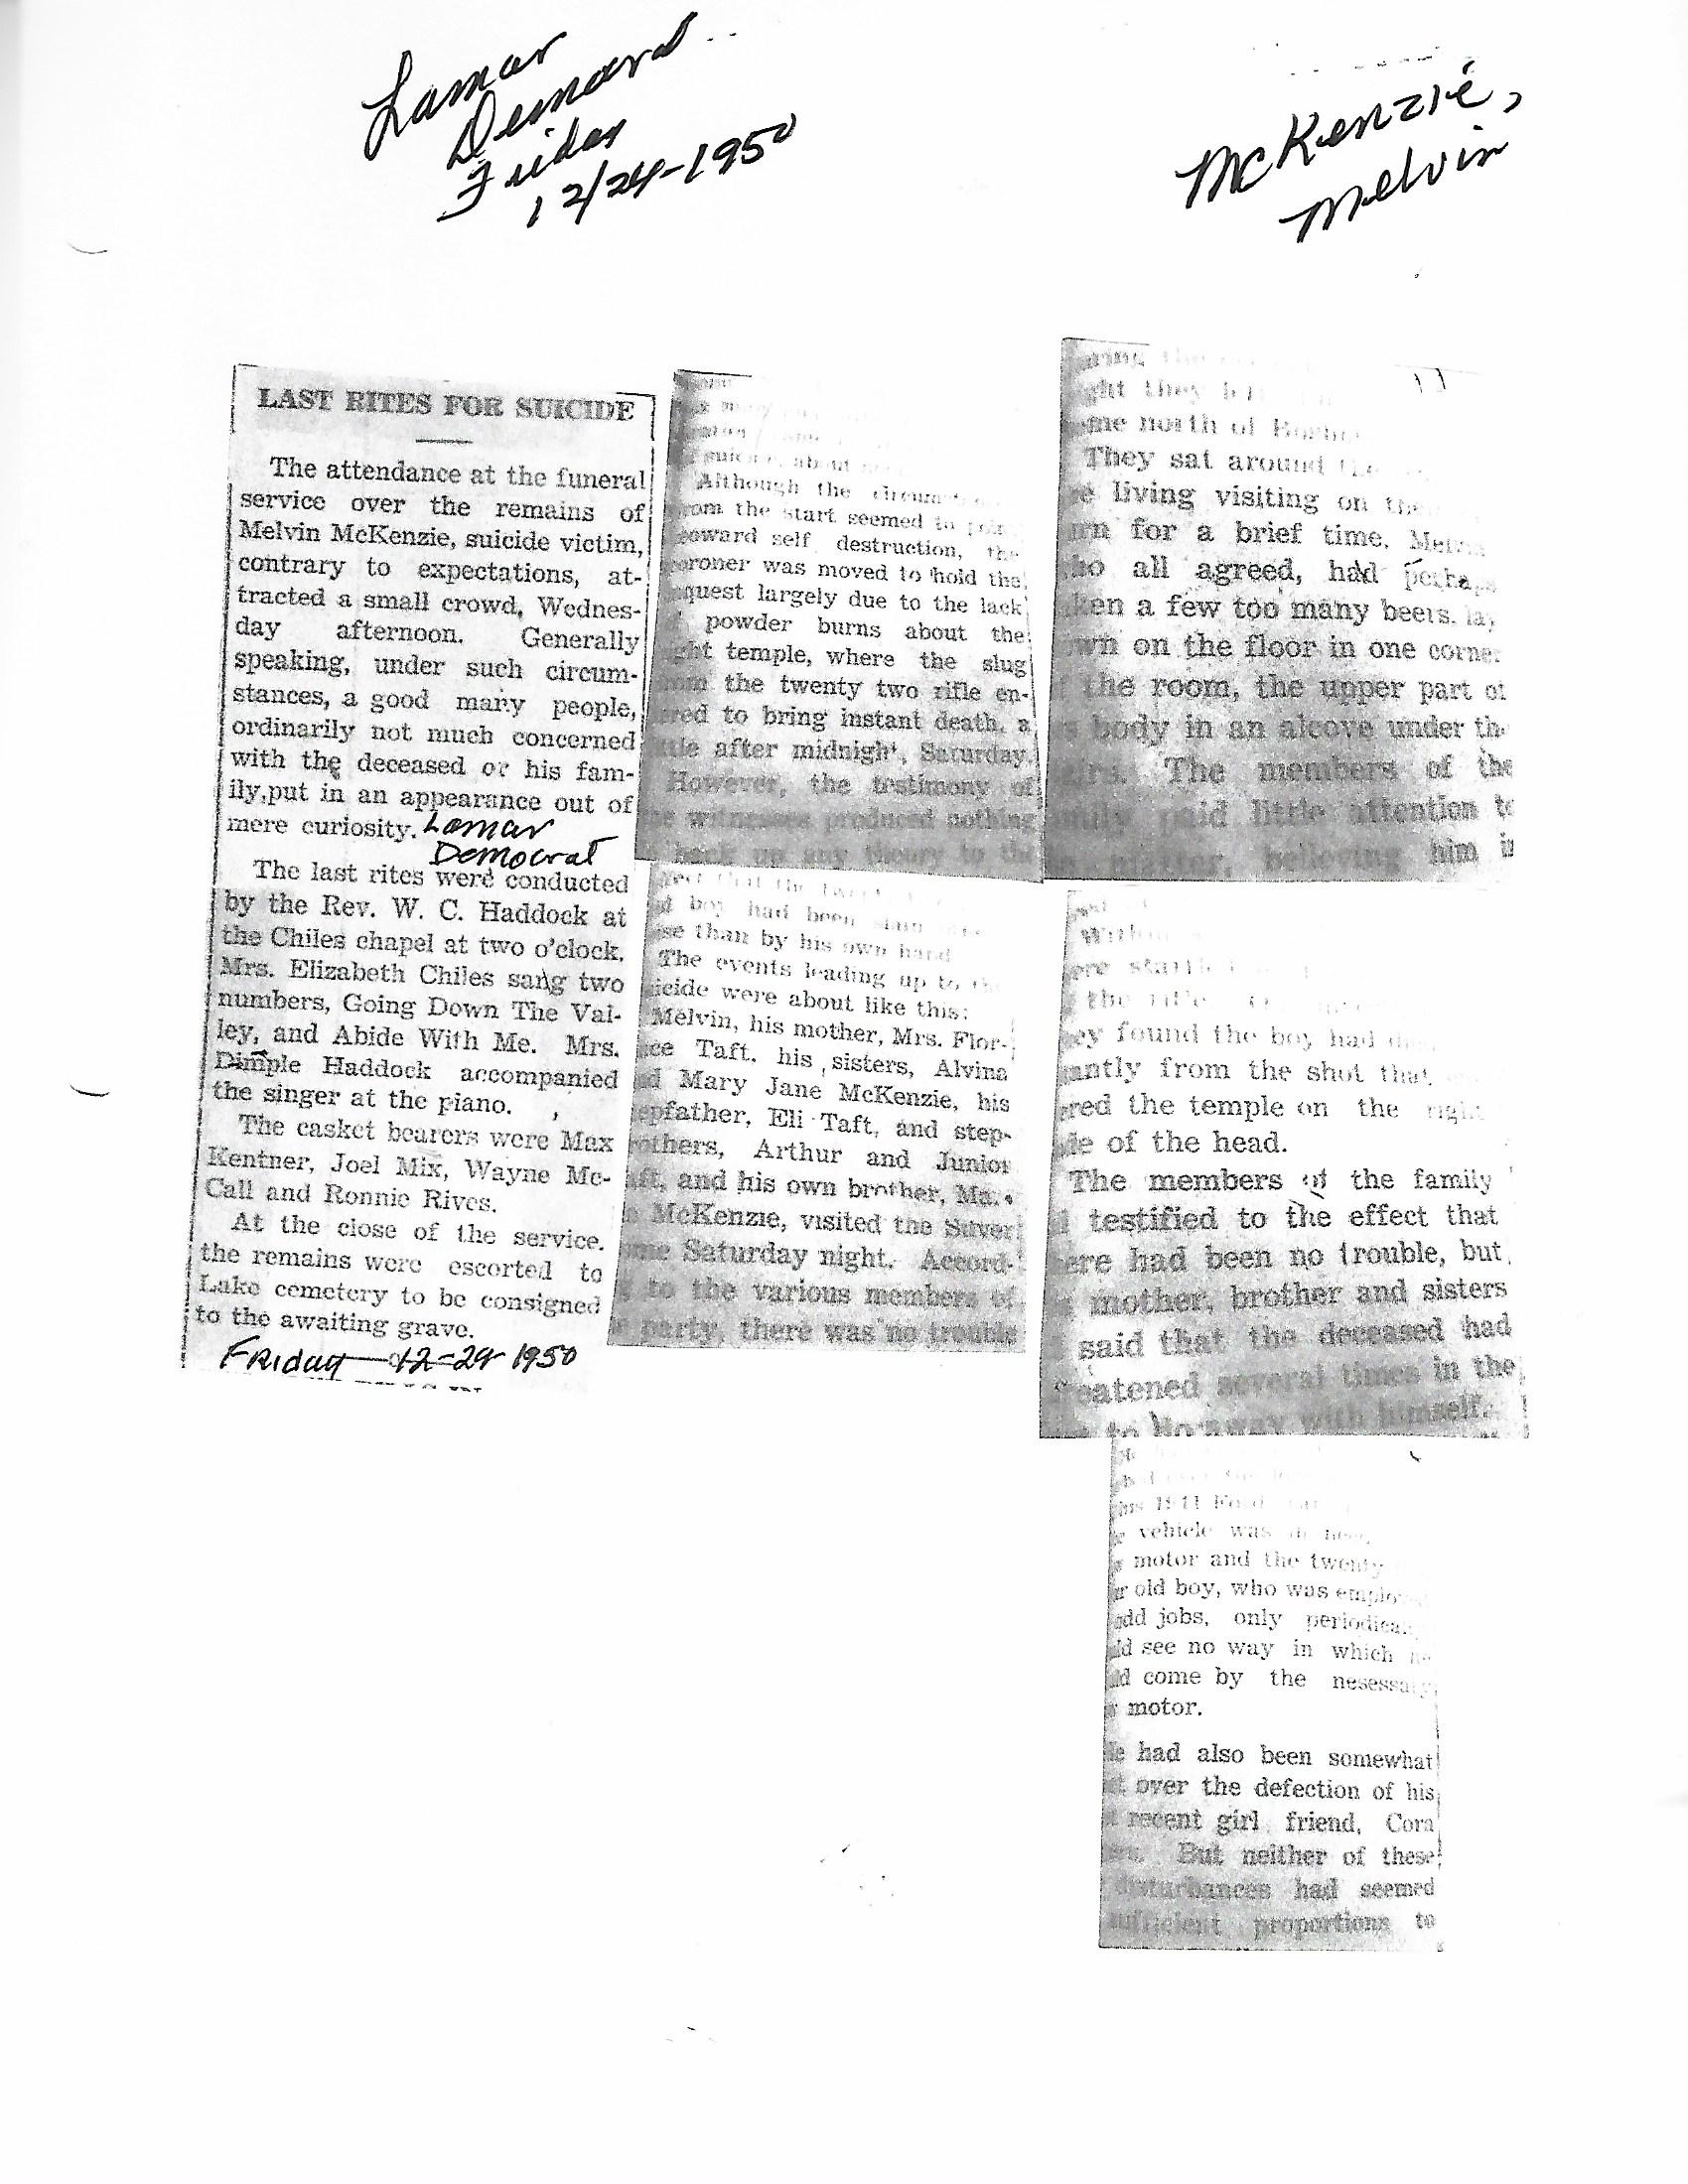 Lamar
Democrat
Friday
12/24-1950
McKenzie,
Melvin
LAST RITES FOR SUICIDE
The attendance at the funeral
service over the remains of
Melvin McKenzie, suicide victim,
contrary to expectations, at-
tracted a small crowd, Wednes-
day afternoon. Generally
speaking, under such circum-
stances, a good many people,
ordinarily not much concerned
with the deceased or his fam-
ily,put in an appearance out of
mere curiosity. Lamar
Democrat
The last rites were conducted
by the Rev. W. C. Haddock at
the Chiles chapel at two o'clock.
Mrs. Elizabeth Chiles sang two
numbers, Going Down The Val-
ley, and Abide With Me. Mrs.
Dimple Haddock accompanied
the singer at the piano.
The casket bearers were Max
Kentner, Joel Mix, Wayne Mc-
Call and Ronnie Rives.
At the close of the service.
the remains were escorted to
Lake cemetery to be consigned
to the awaiting grave.
Friday 12-29-1950
about
Although the
the start seemed to
toward self destruction, the
coroner was moved to hold the
quest largely due to the lack
powder burns about the
ght temple, where the slug
the twenty two rifle en-
red to bring instant death, a
tle after midnight, Saturday.
However, the testimony of
witnesses produced nothing
back up any theory to the
that the
boy had been slain
se than by his own hand
The events leading up to
icide were about like this:
Melvin, his mother, Mrs. Flor-
ce Taft, his sisters, Alvina
d Mary Jane McKenzie, his
epfather, Eli Taft, and step-
rothers, Arthur and Junior
aft, and his own brother,
McKenzie, visited the Silver
me Saturday night. Accord-
to the various members of
party, there was no trouble
ght they
me north of
They sat around
living visiting on
for a brief time. Melvin
ho all agreed, had perhaps
ken a few too many beers, lay
wn on the floor in one corner
the room, the upper part of
s body in an alcove under the
airs. The members of the
mily paid little attention to
believing him in
ere
the rifle
ey found the boy had
antly from the shot that
ered the temple on the right
de of the head.
The members of the family
testified to the effect that
ere had been no trouble, but
mother, brother and sisters
said that the deceased had
eatened several times in the
to do away with himself.
his 1941 Ford
vehicle was in
motor and the twenty
r old boy, who was
odd jobs, only
ld see no way in which
ld come by the nesessary
motor.
He had also been somewhat
over the defection of his
recent girl friend, Cora
But neither of these
disturbances had seemed
sufficient proportions to